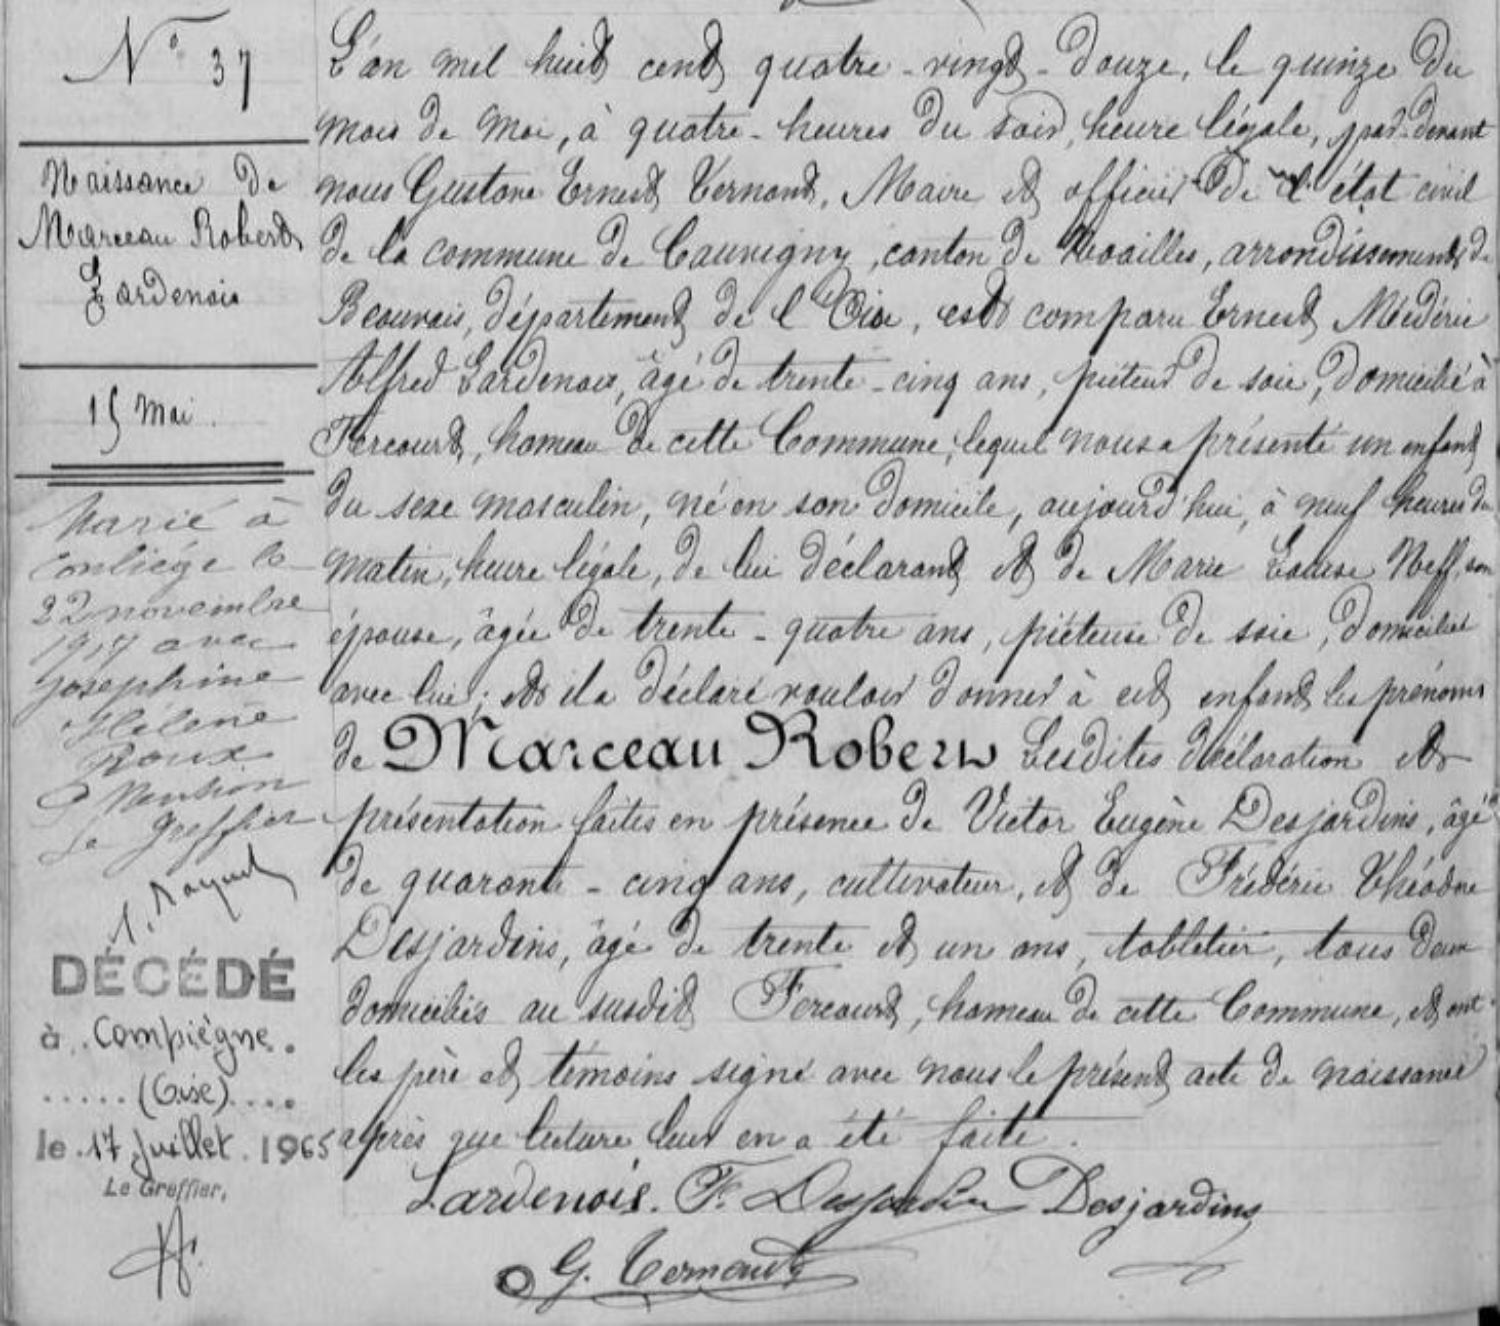 N° 37
Naissance de
Marceau Robert
Lardenois
15 Mai.
Marié à
Conliège le
22 novembre
1917 avec
Joséphine
Hélène
Roux
Mention
Le Greffier
DÉCÉDÉ
à Compiègne.
(Oise)
le 17 Juillet 1965
Le Greffier,
L'an mil huit cent quatre-vingt-douze, le quinze du
mois de Mai, à quatre-heures du soir, heure légale, par-devant
nous Gustave Ernest Ternaud, Maire et officier de l'état civil
de la commune de Cauvigny, canton de Noailles, arrondissement de
Beauvais, département de l'Oise, est comparu Ernest Médéric
Alfred Lardenois, âgé de trente-cinq ans, piéteur de soie, domicilié à
Fercourt, hameau de cette Commune, lequel nous a présenté un enfant
du sexe masculin, né en son domicile, aujourd'hui, à neuf heures du
matin, heure légale, de lui déclarant et de Marie Louise Neff, son
épouse, âgée de trente-quatre ans, piéteuse de soie, domiciliée
avec lui; et il a déclaré vouloir donner à cet enfant les prénoms
de Marceau Robert Lesdites déclaration et
présentation faites en présence de Victor Eugène Desjardins, âgé
de quarante-cinq ans, cultivateur, et de Frédéric Théodore
Desjardins, âgé de trente et un ans, tabletier, tous deux
domiciliés au susdit Fercourt, hameau de cette Commune, et ont
les père et témoins signé avec nous le présent acte de naissance
après que lecture leur en a été faite.
Lardenois. F. Desjardins Desjardins
G. Ternaud